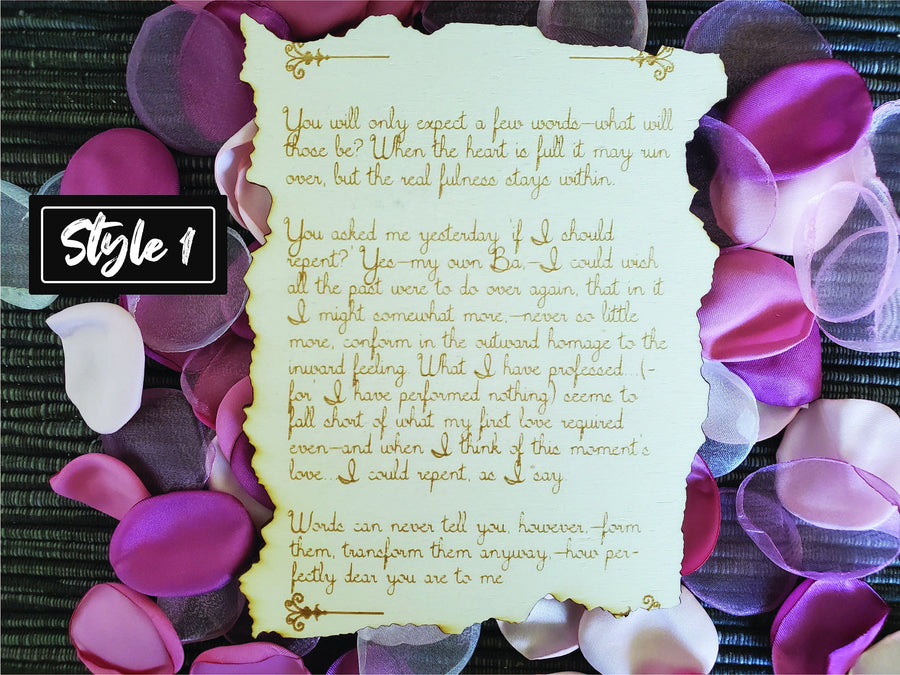 Style 1
You will only expect a few words—what will
those be? When the heart is full it may run
over, but the real fulness stays within.
You asked me yesterday 'if I should
repent?' Yes—my own Ba,—I could wish
all the past were to do over again, that in it
I might somewhat more,—never so little
more, conform in the outward homage to the
inward feeling. What I have professed...(-
for I have performed nothing) seems to
fall short of what my first love required
even—and when I think of this moment's
love...I could repent, as I say.
Words can never tell you, however,—form
them, transform them anyway,—how per-
fectly dear you are to me